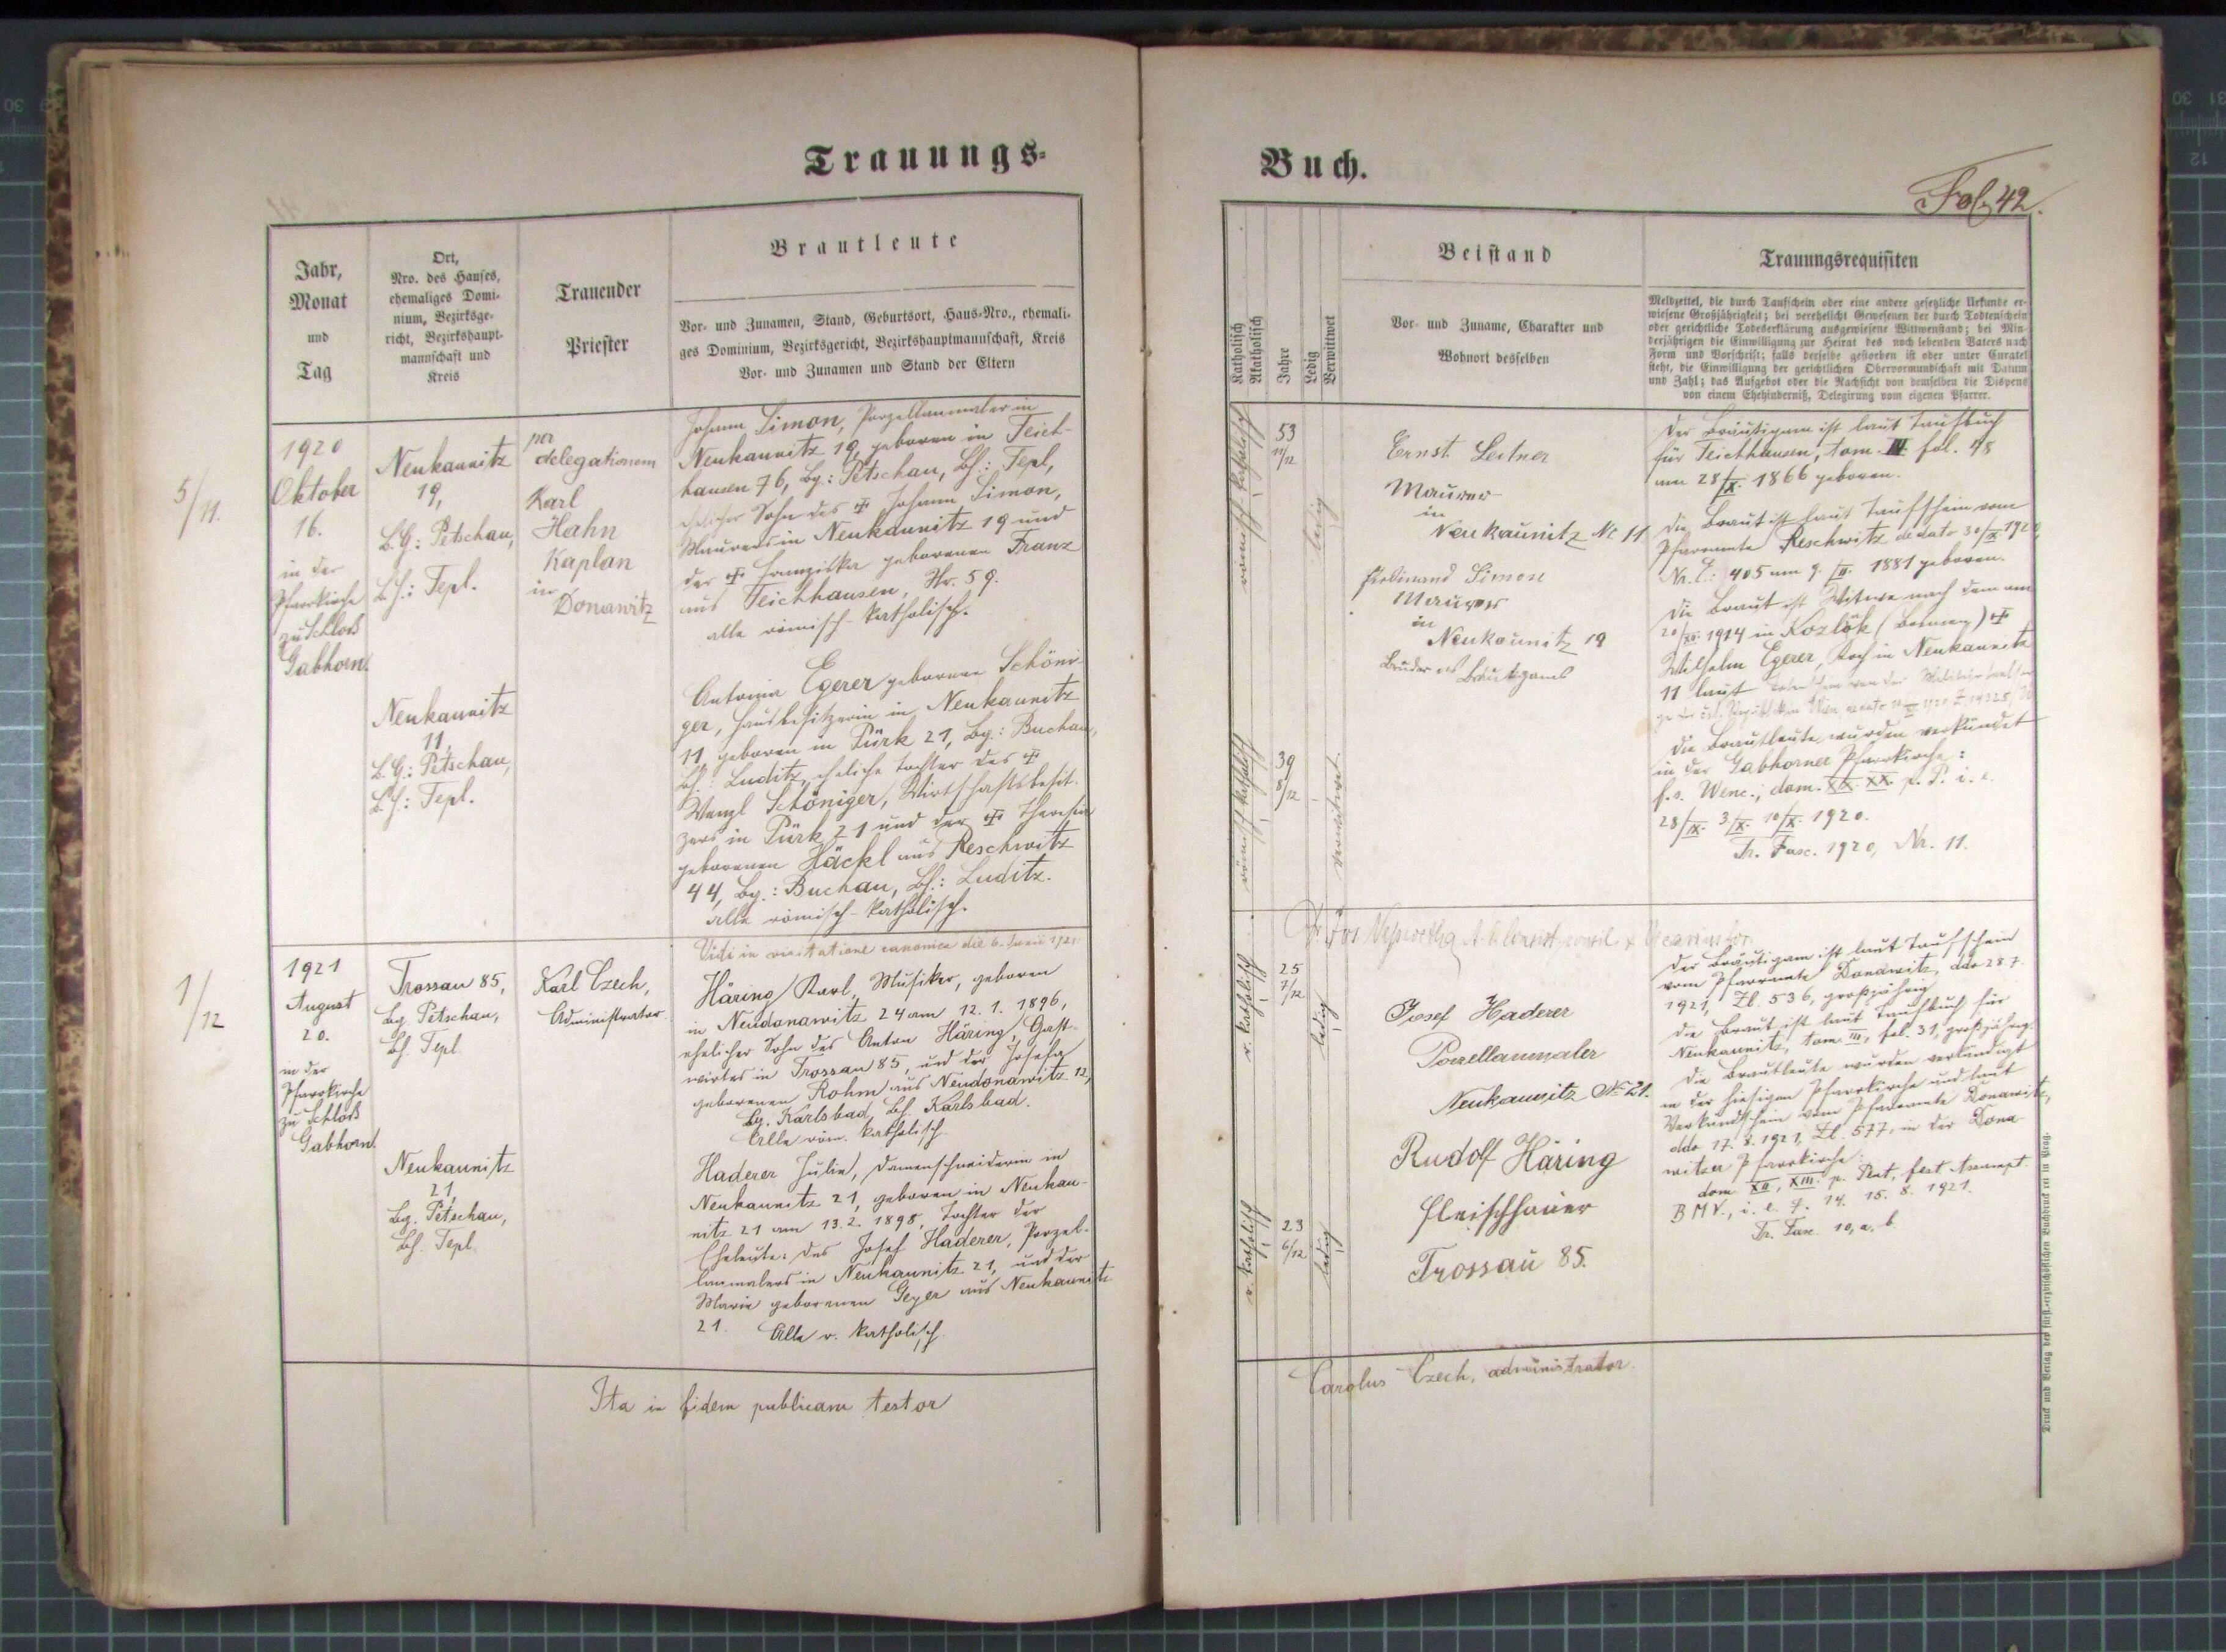 Trauungs=
Jahr,
Monat
und
Tag
Ort,
Nro. des Hauses,
ehemaliges Domi-
nium, Bezirksge-
richt, Bezirkshaupt-
mannschaft und
Kreis
Trauender
Priester
Brautleute
Vor- und Zunamen, Stand, Geburtsort, Haus-Nro., ehemali-
ges Dominium, Bezirksgericht, Bezirkshauptmannschaft, Kreis
Vor- und Zunamen und Stand der Eltern
5/11.
1920
Oktober
16.
in der
Pfarrkirche
zu Schloß
Gabhorn.
Neukaunitz
19,
B.G: Petschau,
B.H.: Tepl.
per
delegationem
Karl
Hahn
Kaplan
in
Donawitz
Johann Simon, Porzellanmaler in
Neukaunitz 19, geboren in Teich-
hausen 76, Bg.: Petschau, Bh.: Tepl,
ehelicher Sohn des Johann Simon,
Maurers in Neukaunitz 19 und
der Franziska geborenen Franz
aus Teichhausen, Nr. 59.
alle römisch-katholisch.
Neukaunitz
11,
B.G.: Petschau,
B.H.: Tepl.
Antonia Egerer geborene Schöni-
ger, Hausbesitzerin in Neukaunitz
11 geboren in Pürk 21, Bg.: Buchau,
Bh.: Luditz, eheliche Tochter des
Wenzl Schöniger, Wirtschaftsbesit-
zers in Pürk 21 und der Theresia
geborenen Häckl aus Reschwitz
44, Bg.: Buchau, Bh.: Luditz.
alle römisch-katholisch.
Vidi in visitatione canonica die 6. Junii 1921
1/12
1921
August
20.
in der
Pfarrkirche
zu Schloß
Gabhorn.
Trossau 85,
Bg. Petschau,
Bh. Tepl.
Karl Czech,
Administrator.
Häring Karl, Musiker, geboren
in Neudonawitz 24 am 12. 1. 1896,
ehelicher Sohn des Anton Häring, Gast-
wirtes in Trossau 85, und der Josefa
geborenen Rohm aus Neudonawitz 12,
Bg. Karlsbad, Bh. Karlsbad.
Alle röm. katholisch.
Neukaunitz
21,
Bg. Petschau,
Bh. Tepl.
Haderer Julie, Damenschneiderin in
Neukaunitz 21, geboren in Neukau-
nitz 21 am 13. 2. 1898, Tochter der
Eheleute: des Josef Haderer, Porzel-
lanmalers in Neukaunitz 21, und der
Marie geborenen Geyer aus Neukaunitz
21. Alle r. katholisch.
Ita in fidem publicam testor
Buch.
Fol. 42.
Katholisch
Akatholisch
Jahre
Ledig
Verwittwet
Beistand
Vor- und Zuname, Charakter und
Wohnort desselben
Trauungsrequisiten
Meldzettel, die durch Taufschein oder eine andere gesetzliche Urkunde er-
wiesene Großjährigkeit; bei verehelicht Gewesenen der durch Todtenschein
oder gerichtliche Todeserklärung ausgewiesene Wittwenstand; bei Min-
derjährigen die Einwilligung zur Heirat des noch lebenden Vaters nach
Form und Vorschrift; falls derselbe gestorben ist oder unter Curatel
steht, die Einwilligung der gerichtlichen Obervormundschaft mit Datum
und Zahl; das Aufgebot oder die Nachsicht von demselben die Dispens
von einem Ehehinderniß, Delegirung vom eigenen Pfarrer.
römisch-katholisch
53
11/12
ledig
Ernst Leitner
Maurer
in
Neukaunitz Nr 11
Ferdinand Simon
Maurer
in
Neukaunitz 19
Bruder des Bräutigams
Der Bräutigam ist laut Taufbuch
für Teichhausen, tom. III. fol. 48
am 28/X. 1866 geboren.
Die Braut ist laut Taufschein vom
Pfarramte Reschwitz de dato 30/X 1920,
Nr. E.: 405 am 9. 1881 geboren.
Die Braut ist Witwe nach dem am
1914 in Kozlók
Wilhelm Egerer, Koch in Neukaunitz
11 laut
Die Brautleute wurden verkündet
in der Gabhorner Pfarrkirche:
f. s. Wenc.; dom. XIX. XX. p. P. i. e.
28/IX. 3/X. 10/X. 1920.
Tr. Fasc. 1920, Nr. 11.
römisch-katholisch
39
8/12
verwitwet.
r. katholisch
25
7/12
ledig
Josef Haderer
Porzellanmaler
Neukaunitz No 21.
Rudolf Häring
Fleischhauer
Trossau 85.
Der Bräutigam ist laut Taufschein
vom Pfarramte Donawitz, ddo 28. 7.
1921, Zl. 536, großjährig.
Die Braut ist laut Taufbuch für
Neukaunitz, tom. III, fol. 31, großjährig.
Die Brautleute wurden verkündigt
in der hiesigen Pfarrkirche und laut
Verkündschein vom Pfarramte Donawitz,
ddo 17. 8. 1921, Zl. 577, in der Dona-
witzer Pfarrkirche:
dom. XII, XIII. p. Pent, fest Assumpt.
B M V., i. e. 7. 14. 15. 8. 1921.
Tr. Fasc. 10, a, b.
r. katholisch
23
6/12
ledig
Carolus Czech, administrator.
Druck und Verlag der fürst-erzbischöflichen Buchdruckerei in Prag.